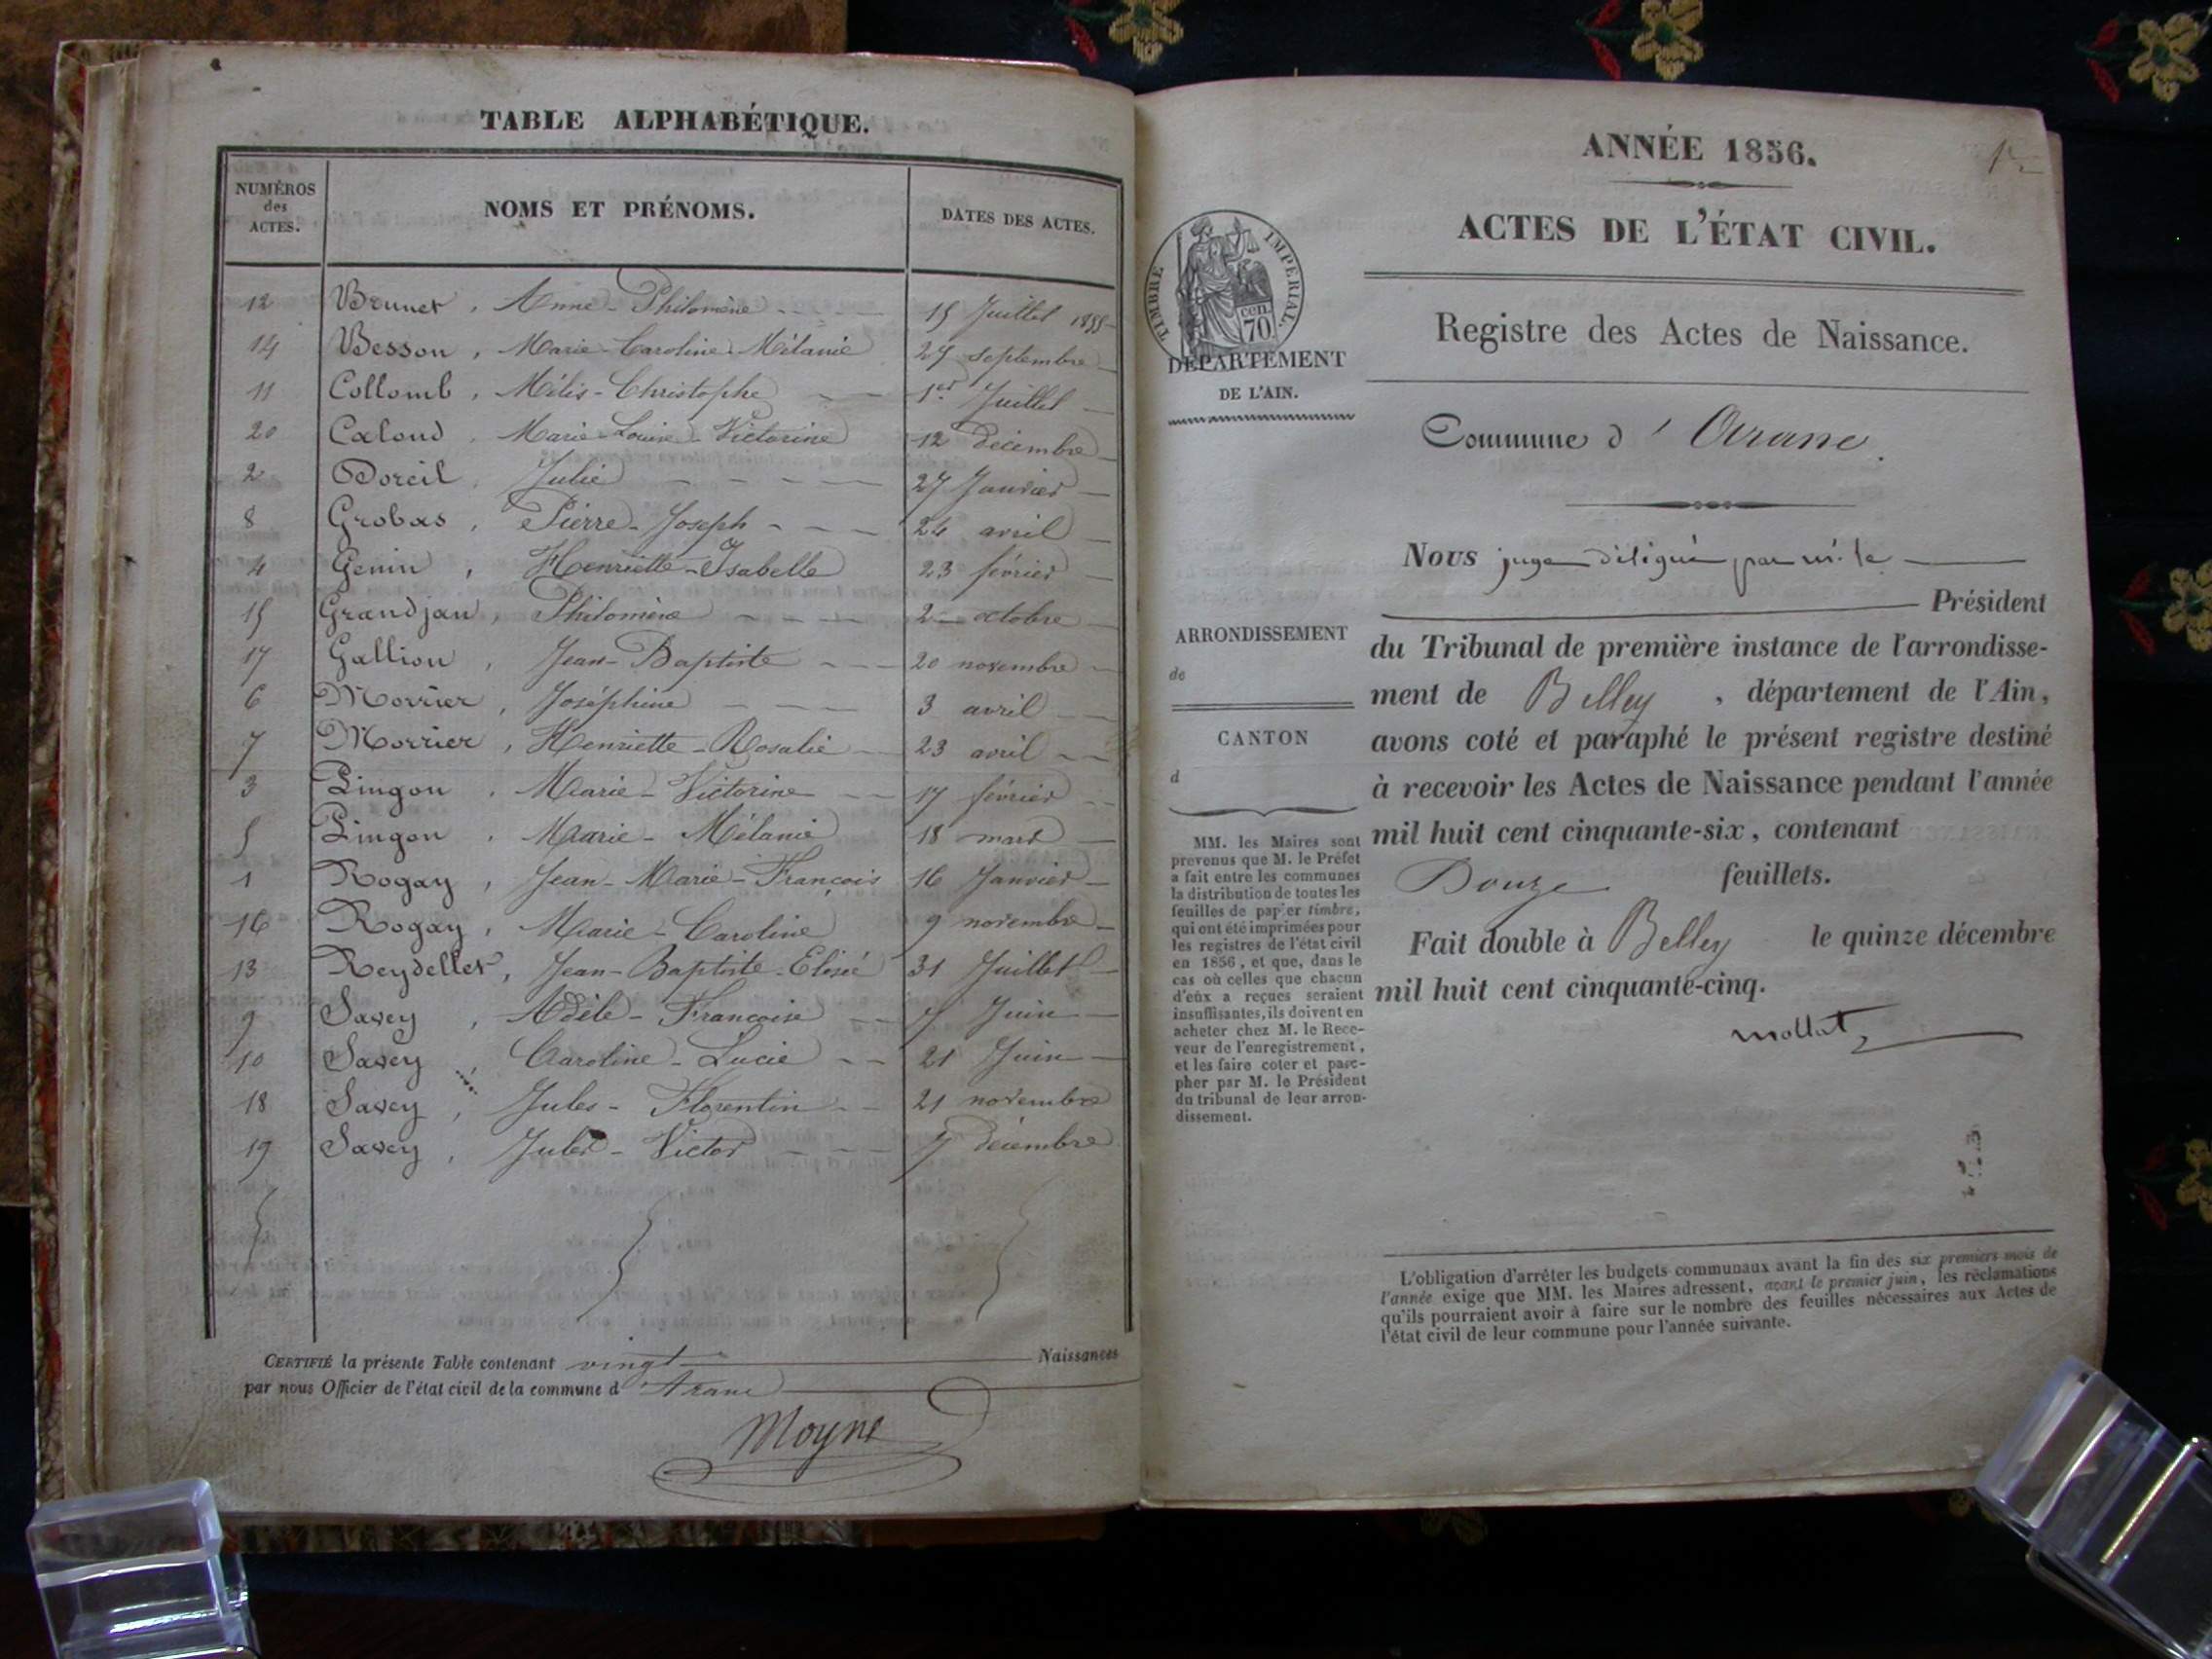 TABLE ALPHABÉTIQUE.
NUMÉROS des ACTES. NOMS ET PRÉNOMS. DATES DES ACTES.
12 Brunet, Anne-Philomène 15 Juillet 1855
14 Besson, Marie-Caroline-Mélanie 27 septembre
11 Collomb, Mélis-Christophe 1er Juillet
20 Caloud, Marie-Louise-Victorine 12 décembre
2 Doreil, Julie 27 Janvier
8 Grobas, Pierre-Joseph 24 avril
4 Genin, Henriette-Isabelle 23 février
15 Grandjan, Philomène 2 octobre
17 Gallion, Jean-Baptiste 20 novembre
6 Morrier, Joséphine 3 avril
7 Morrier, Henriette-Rosalie 23 avril
3 Pingon, Marie-Victorine 17 février
5 Pingon, Marie-Mélanie 18 mars
1 Rogay, Jean-Marie-François 16 Janvier
16 Rogay, Marie-Caroline 9 novembre
13 Reydellet, Jean-Baptiste-Elisée 31 Juillet
9 Savey, Adèle-Françoise Juin
10 Savey, Caroline-Lucie 21 Juin
18 Savey, Jules-Florentin 21 novembre
19 Savey, Jules-Victor 7 décembre
CERTIFIÉ la présente Table contenant vingt Naissances
par nous Officier de l'état civil de la commune d Aranc
Moyne
ANNÉE 1856.
ACTES DE L'ÉTAT CIVIL.
TIMBRE IMPERIAL.
70 cen.
DÉPARTEMENT
DE L'AIN.
Registre des Actes de Naissance.
Commune d'Aranc.
Nous juge délégué par mr. le
Président
du Tribunal de première instance de l'arrondisse-
ment de Belley, département de l'Ain,
avons coté et paraphé le présent registre destiné
à recevoir les Actes de Naissance pendant l'année
mil huit cent cinquante-six, contenant
Douze feuillets.
Fait double à Belley le quinze décembre
mil huit cent cinquante-cinq.
mollat
ARRONDISSEMENT
de
CANTON
d
MM. les Maires sont
prevenus que M. le Préfet
a fait entre les communes
la distribution de toutes les
feuilles de papier timbre,
qui ont été imprimées pour
les registres de l'état civil
en 1856, et que, dans le
cas où celles que chacun
d'eux a reçues seraient
insuffisantes, ils doivent en
acheter chez M. le Rece-
veur de l'enregistrement,
et les faire coter et para-
pher par M. le Président
du tribunal de leur arron-
dissement.
L'obligation d'arrêter les budgets communaux avant la fin des six premiers mois de
l'année exige que MM. les Maires adressent, avant le premier juin, les réclamations
qu'ils pourraient avoir à faire sur le nombre des feuilles nécessaires aux Actes de
l'état civil de leur commune pour l'année suivante.